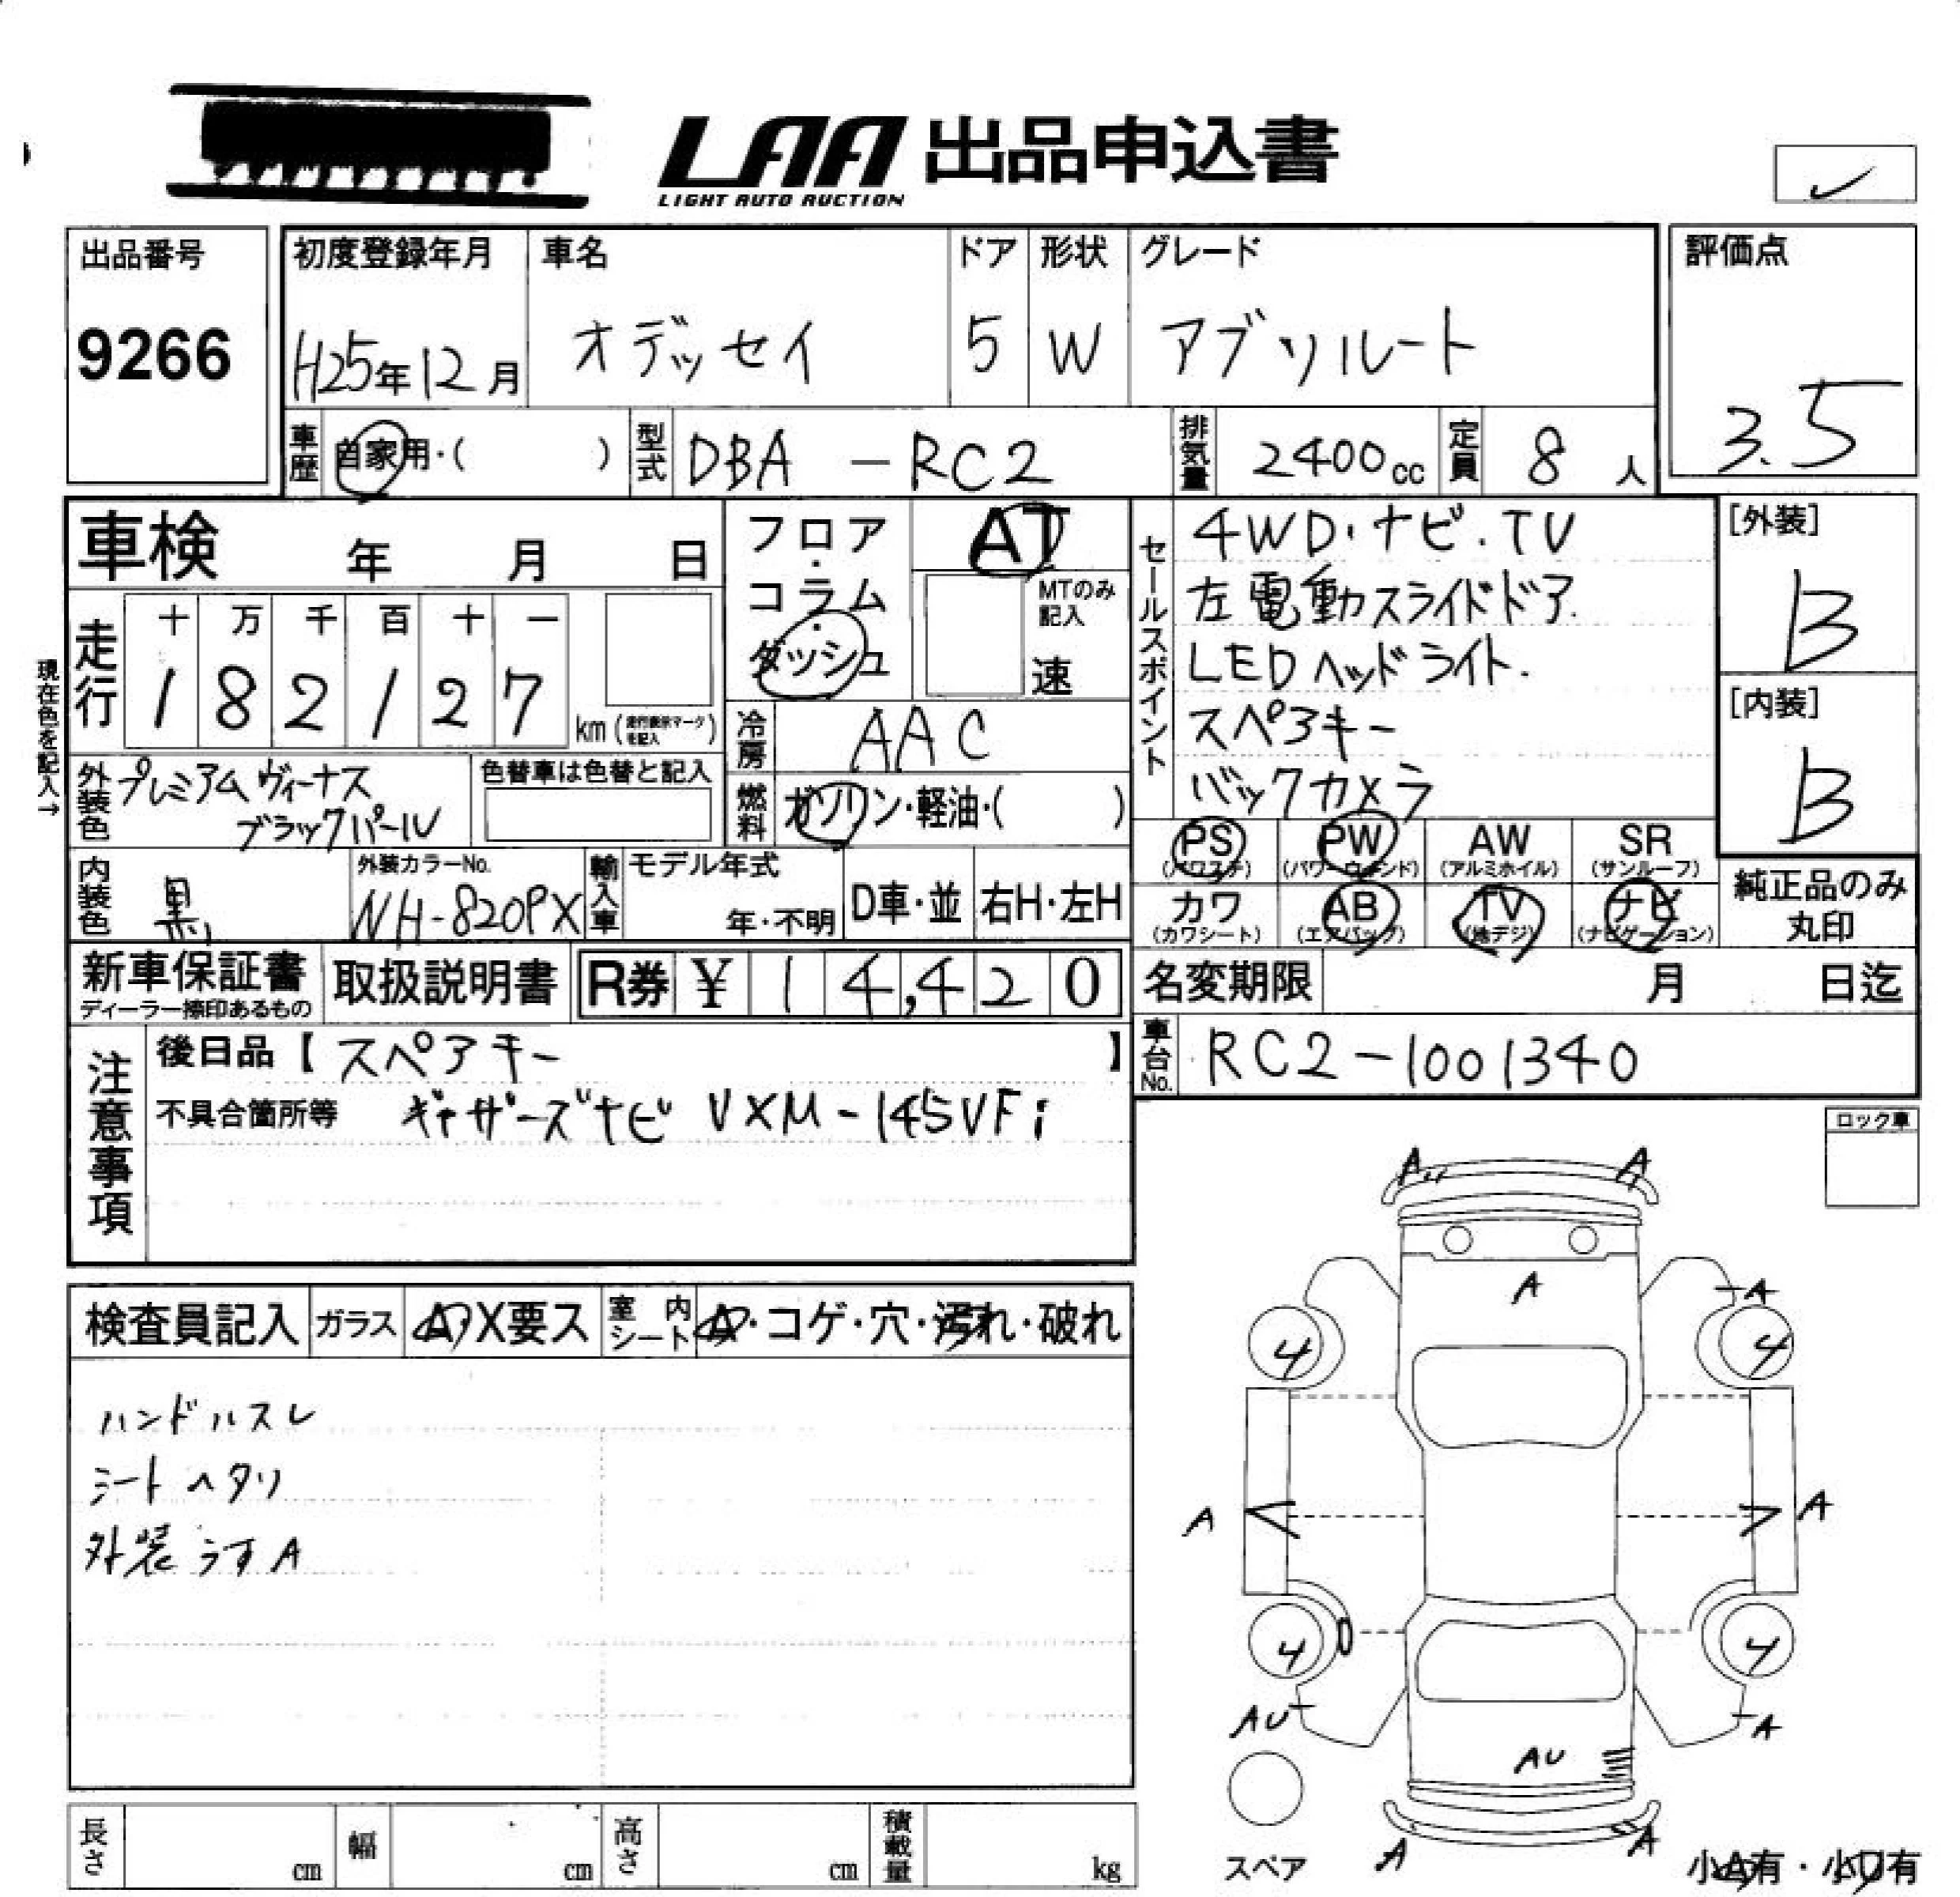 LAA 出品申込書
LIGHT AUTO AUCTION
✓
出品番号
9266
初度登録年月 車名 ドア 形状 グレード
H25年12月 オデッセイ 5 W アブソルート
評価点
3.5
車歴 自家用・( ) 型式 DBA - RC2 排気量 2400cc 定員 8人
車検 年 月 日
フロア・コラム・ダッシュ
AT
MTのみ記入
速
現在色を記入→
走行 十 万 千 百 十 一
1 8 2 1 2 7 km (走行表示マークを記入)
冷房 AAC
外装色 プレミアムヴィーナス
ブラックパール
色替車は色替と記入
燃料 ガソリン・軽油・( )
内装色 黒
外装カラーNo.
NH-820PX
輸入車 モデル年式
年・不明 D車・並 右H・左H
セールスポイント
4WD・ナビ・TV
左電動スライドドア.
LEDヘッドライト.
スペアキー
バックカメラ
[外装]
B
[内装]
B
PS PW AW SR
(パワステ) (パワーウィンド) (アルミホイル) (サンルーフ)
カワ AB TV ナビ
(カワシート) (エアバッグ) (地デジ) (ナビゲーション)
純正品のみ
丸印
新車保証書
ディーラー捺印あるもの
取扱説明書
R券 ¥ 14,420
名変期限 月 日迄
車台No. RC2-1001340
注意事項
後日品【 スペアキー 】
不具合箇所等 ギャザーズナビ VXM-145VFi
ロック車
検査員記入 ガラス A・X要ス 室内シート A・コゲ・穴・汚れ・破れ
ハンドルスレ
シートヘタリ
外装うすA
A A
A
A
4 4
A A
4 4
AU A
AU
A A
スペア
小A有・小U有
長さ cm 幅 cm 高さ cm 積載量 kg